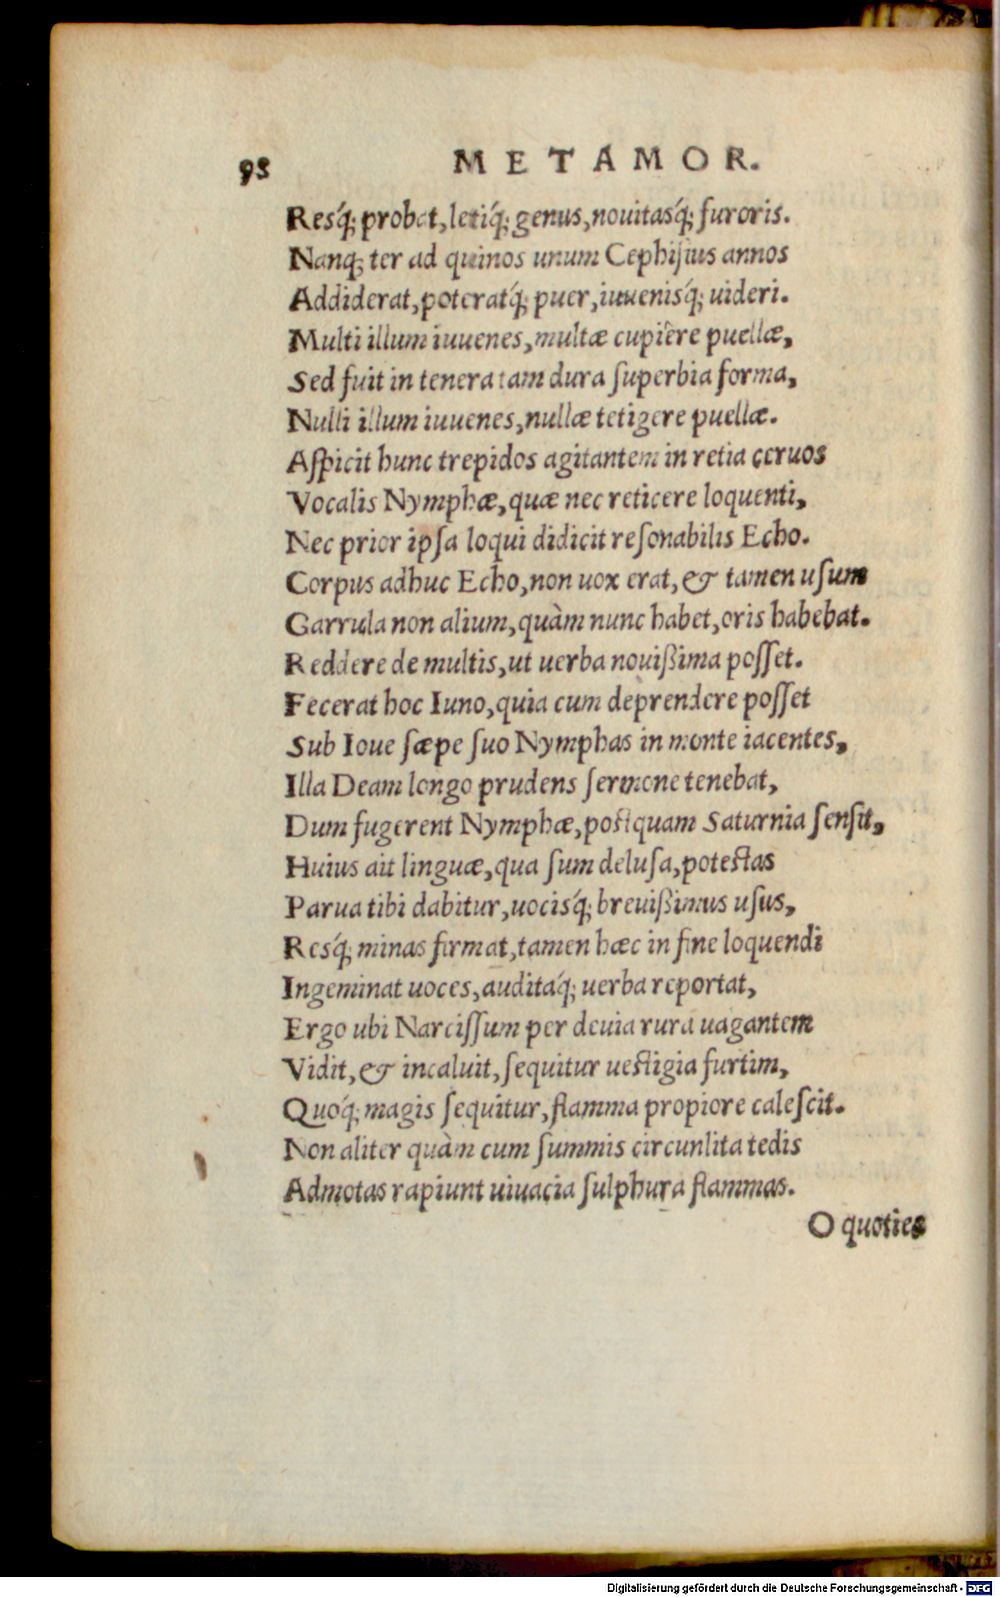 98 METAMOR.
Resq́; probat, letiq́; genus, nouitasq́; furoris.
Nanq; ter ad quinos unum Cephisius annos
Addiderat, poteratq́; puer, iuuenisq́; uideri.
Multi illum iuuenes, multæ cupiêre puellæ,
Sed fuit in tenera tam dura superbia forma,
Nulli illum iuuenes, nullæ tetigere puellæ.
Aspicit hunc trepidos agitantem in retia ceruos
Vocalis Nymphæ, quæ nec reticere loquenti,
Nec prior ipsa loqui didicit resonabilis Echo.
Corpus adhuc Echo, non uox erat, & tamen usum
Garrula non alium, quàm nunc habet, oris habebat.
Reddere de multis, ut uerba nouißima posset.
Fecerat hoc Iuno, quia cum deprendere posset
Sub Ioue sæpe suo Nymphas in monte iacentes,
Illa Deam longo prudens sermone tenebat,
Dum fugerent Nymphæ, postquam Saturnia sensit,
Huius ait linguæ, qua sum delusa, potestas
Parua tibi dabitur, uocisq́; breuißimus usus,
Resq́; minas firmat, tamen hæc in fine loquendi
Ingeminat uoces, auditaq́; uerba reportat,
Ergo ubi Narcissum per deuia rura uagantem
Vidit, & incaluit, sequitur uestigia furtim,
Quoq́; magis sequitur, flamma propiore calescit.
Non aliter quàm cum summis circunlita tedis
Admotas rapiunt uiuacia sulphura flammas.
O quoties
Digitalisierung gefördert durch die Deutsche Forschungsgemeinschaft - DFG